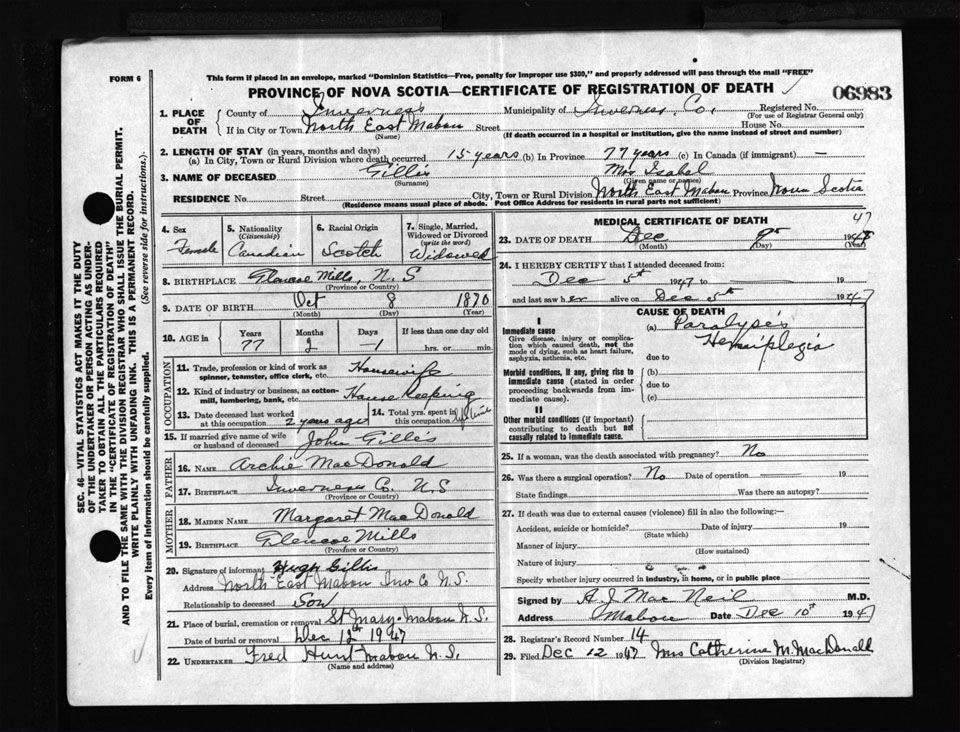 FORM 6
This form if placed in an envelope, marked "Dominion Statistics—Free, penalty for improper use $300," and properly addressed will pass through the mail "FREE"
PROVINCE OF NOVA SCOTIA—CERTIFICATE OF REGISTRATION OF DEATH
06983
1. PLACE OF DEATH County of Inverness Municipality of Inverness Co. Registered No.
(For use of Registrar General only)
If in City or Town North East Mabou Street House No.
(Name) (If death occurred in a hospital or institution, give the name instead of street and number)
2. LENGTH OF STAY (in years, months and days)
(a) In City, Town or Rural Division where death occurred 15 years (b) In Province 77 years (c) In Canada (if immigrant) —
3. NAME OF DECEASED Gillis Mrs Isabel
(Surname) (Given name or names)
RESIDENCE No. Street City, Town or Rural Division North East Mabou Province Nova Scotia
(Residence means usual place of abode. Post Office Address for residents in rural parts not sufficient)
4. Sex Female
5. Nationality (Citizenship) Canadian
6. Racial Origin Scotch
7. Single, Married, Widowed or Divorced (write the word) Widowed
8. BIRTHPLACE Glencoe Mills, N.S
(Province or Country)
9. DATE OF BIRTH Oct 8 1870
(Month) (Day) (Year)
10. AGE in Years Months Days If less than one day old
77 2 1 hrs. or min.
OCCUPATION
11. Trade, profession or kind of work as spinner, teamster, office clerk, etc. Housewife
12. Kind of industry or business, as cotton-mill, lumbering, bank, etc. House Keeping
13. Date deceased last worked at this occupation 2 years ago
14. Total yrs. spent in this occupation life time
15. If married give name of wife or husband of deceased John Gillis
FATHER
16. NAME Archie MacDonald
17. BIRTHPLACE Inverness Co. N.S
(Province or Country)
MOTHER
18. MAIDEN NAME Margaret MacDonald
19. BIRTHPLACE Glencoe Mills
(Province or Country)
20. Signature of informant Hugh Gillis
Address North East Mabou Inv Co N.S.
Relationship to deceased Son
21. Place of burial, cremation or removal St Mary's Mabou N.S.
Date of burial or removal Dec 12th 1947
22. UNDERTAKER Fred Hunt Mabou N.S.
(Name and address)
MEDICAL CERTIFICATE OF DEATH
47
23. DATE OF DEATH Dec 9th 1948
(Month) (Day) (Year)
24. I HEREBY CERTIFY that I attended deceased from:
Dec 5th 1947 to 19
and last saw her alive on Dec 5th 1947
CAUSE OF DEATH
I
Immediate cause
Give disease, injury or complication which caused death, not the mode of dying, such as heart failure, asphyxia, asthenia, etc.
(a) Paralysis
Hemiplegia
due to
Morbid conditions, if any, giving rise to immediate cause (stated in order proceeding backwards from immediate cause).
(b)
due to
(c)
II
Other morbid conditions (if important) contributing to death but not causally related to immediate cause.
25. If a woman, was the death associated with pregnancy? No
26. Was there a surgical operation? No Date of operation 19
State findings Was there an autopsy?
27. If death was due to external causes (violence) fill in also the following:—
Accident, suicide or homicide? Date of injury 19
(State which)
Manner of injury
(How sustained)
Nature of injury
Specify whether injury occurred in industry, in home, or in public place
Signed by A J MacNeil M.D.
Address Mabou Date Dec 10th 1947
28. Registrar's Record Number 14
29. Filed Dec 12 1947 Mrs Catherine M. MacDonald
(Division Registrar)
SEC. 46—VITAL STATISTICS ACT MAKES IT THE DUTY
OF THE UNDERTAKER OR PERSON ACTING AS UNDER-
TAKER TO OBTAIN ALL THE PARTICULARS REQUIRED
IN THE "CERTIFICATE OF REGISTRATION OF DEATH"
AND TO FILE THE SAME WITH THE DIVISION REGISTRAR WHO SHALL ISSUE THE BURIAL PERMIT.
WRITE PLAINLY WITH UNFADING INK. THIS IS A PERMANENT RECORD.
Every item of information should be carefully supplied. (See reverse side for instructions.)